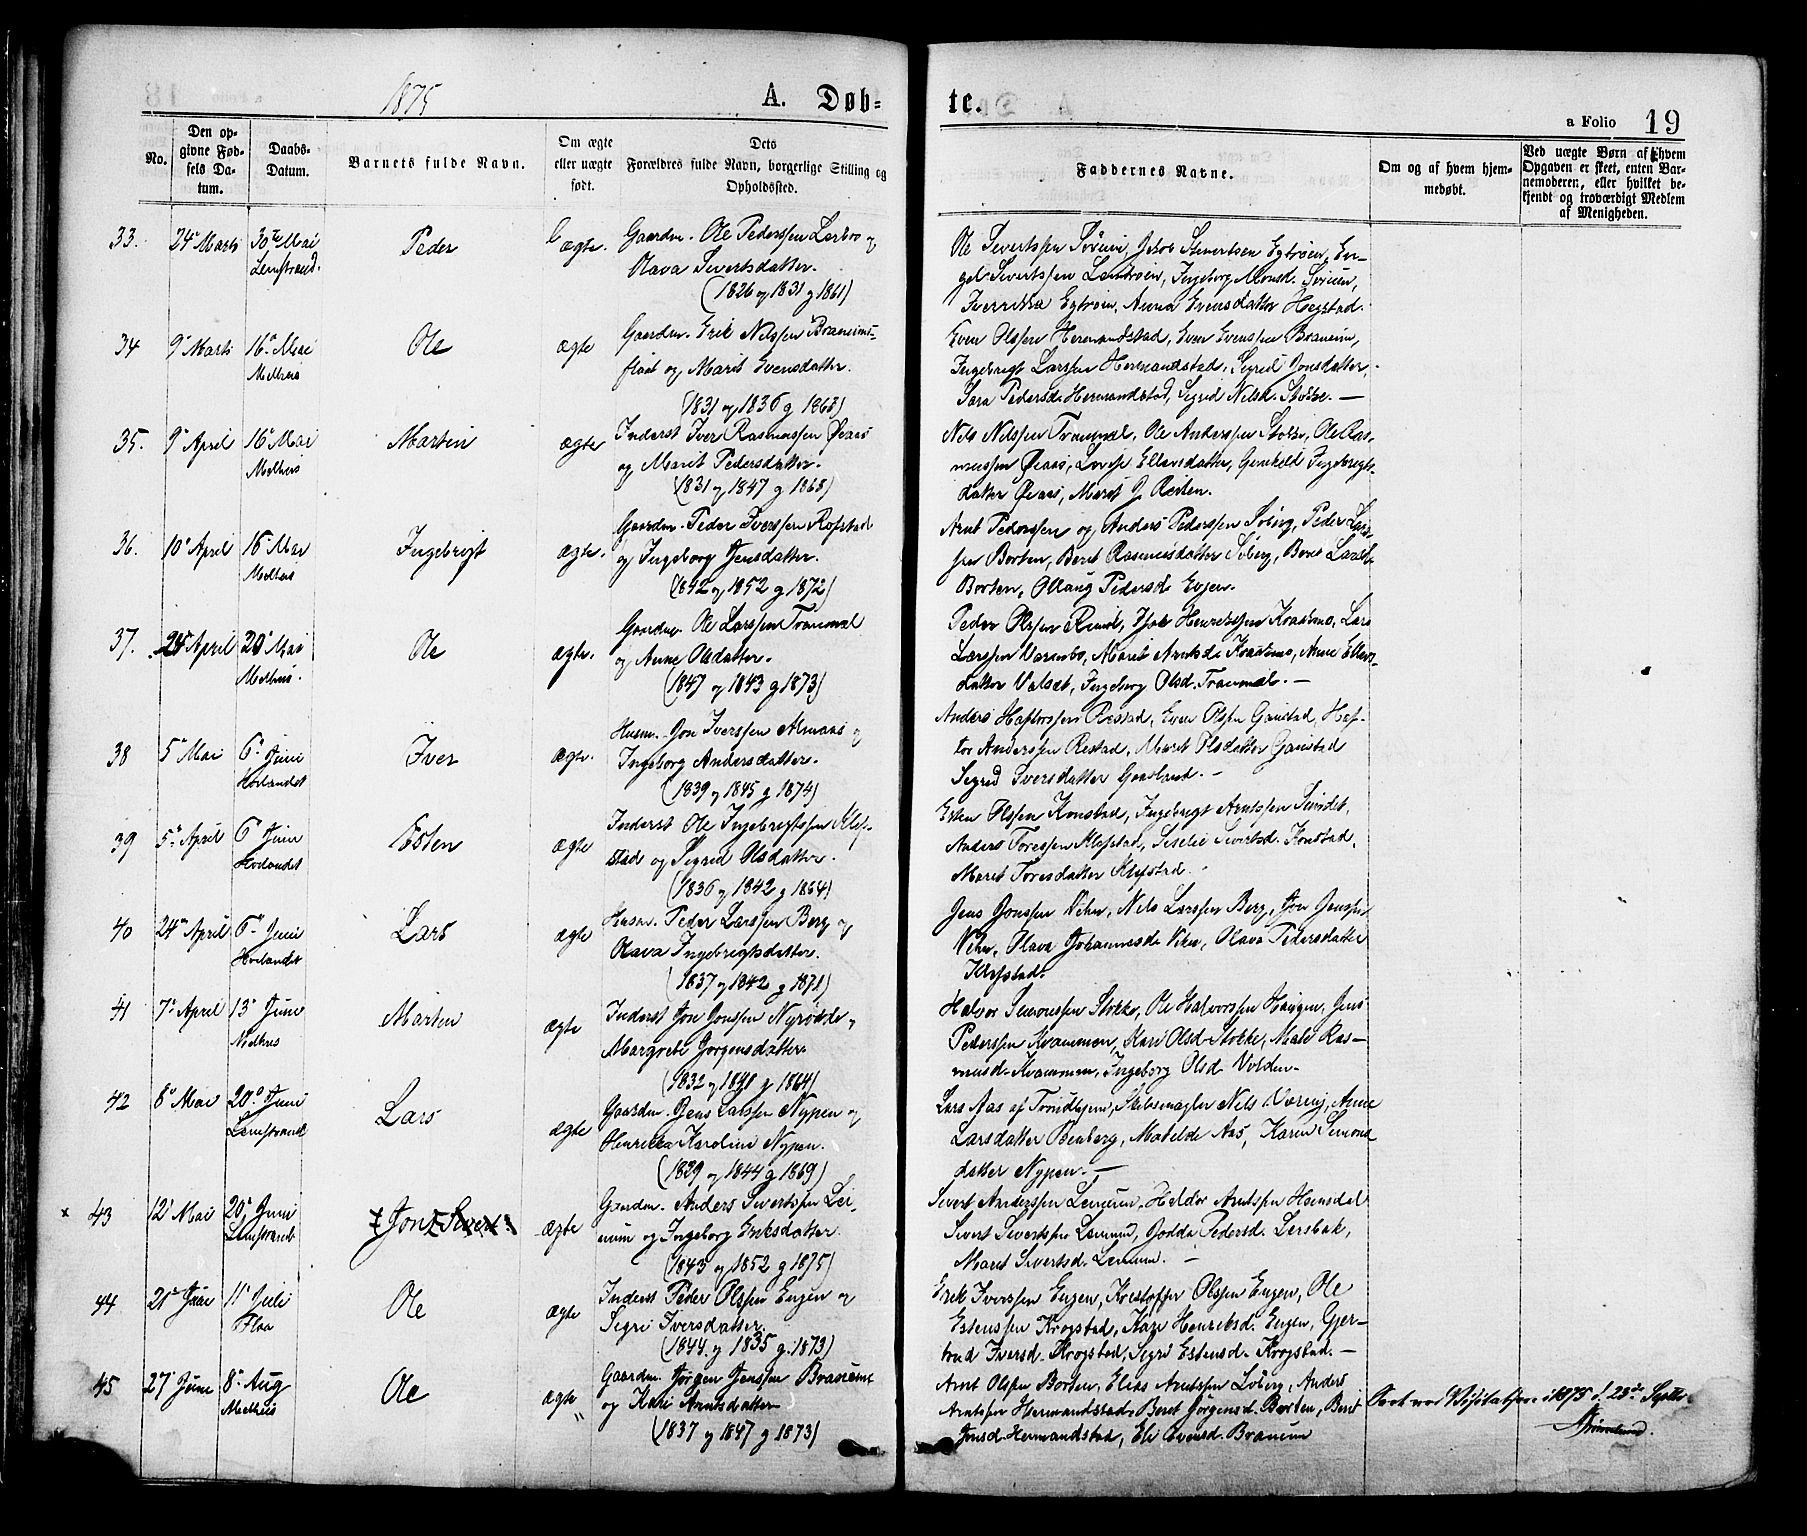 1875
A. Døb-
te.
a Folio 19
No.
Den op-
givne Fød-
sels Da-
tum.
Daabs-
Datum.
Barnets fulde Navn.
Om ægte
eller uægte
født.
Dets
Forældres fulde Navn, borgerlige Stilling og
Opholdssted.
Faddernes Navne.
Om og af hvem hjem-
medøbt.
Ved uægte Børn af hvem
Opgaven er skeet, enten Bar-
nemoderen, eller hvilket be-
kjendt og troværdigt Medlem
af Menigheden.
33. 24 Marts 30te Mai Peder ægte. Gaardm. Ole Pederssen Lerbro og
Lenstrand. Olava Sivertsdatter.
(1826 og 1831 g 1861)
Ole Sivertssen
gel Sivertssen Leinsroin, Ingeborg Monsd.
Anna Evensdatter Hegstad.
34 9 Marts 16 Mai Ole ægte Gaardm. Erik Nilssen Braneims-
Melhus flaat og Marit Evensdatter.
(1831 og 1836 g 1868)
Even Olssen Hermandstad, Even Evenssen Braneim,
Ingebrigt Larssen Hermandstad, Sigrid Jonsdatter,
Sara Pedersd. Hermandstad, Sigrid Nilsd.
35. 9 April 16 Mai Martin ægte Inderst Iver Rasmussen Øiaas
Melhus og Marit Pedersdatter.
(1831 og 1847 g 1868)
Nils Nilssen Tranmæl, Ole Anderssen Stokke, Ole Ras-
mussen Øiaas, Ellevsdatter, Ingebrigts-
datter Øiaas, Marit J.
36. 10 April 16 Mai Ingebrigt ægte. Gaardm. Peder Iverssen Rofstad
Melhus og Ingeborg Jensdatter.
(1842 og 1852 g 1872)
Arnt Pederssen og Anders Pederssen Søberg, Peder Lars-
sen Borten, Beret Rasmusdatter Søberg, Beret Larsd.
Borten, Ollaug Pedersd. Evjen.
37. April 20 Mai Ole ægte. Gaardm. Ole Larssen Tranmæl
Melhus. og Anne Olsdatter.
(1847 og 1843 g 1873)
Peder Olssen Henrikssen Kvasmo, Lars
Larssen Varmbo, Marit Arntsd. Kvasmo, Anne Ellevs-
datter Valset, Ingeborg Olsd. Tranmæl.
38 5 Mai 6 Juni Iver ægte. Husm. Jon Iverssen Almaas og
Hølandet Ingeborg Andersdatter.
(1839 og 1845 g 1874)
Anders Haftorssen Restad, Even Olssen Ganstad, Haf-
tor Anderssen Restad, Marit Olsdatter Ganstad
Sigrid Iversdatter Gaasland.
39 5 April 6 Juni Esten ægte Inderst Ole Ingebrigtssen Klef-
Hølandet stad og Sigrid Olsdatter.
(1836 og 1842 g 1864)
Esten Olssen Konstad, Ingebrigt Arntssen
Anders Toressen Klefstad, Siselie Sivertsd. Konstad,
Marit Toresdatter Klefstad.
40 24 April 6 Juni Lars ægte Husm. Peder Larssen Berg og
Hølandet Olava Ingebrigtsdatter.
(1837 og 1842 g 1871)
Jens Jonssen Nils Larssen Berg, Jon Jenssen
Olava Johannesd. Olava Pedersdatter
Klefstad.
41 7 April 13 Juni Marten ægte Inderst Jon Jonssen Nyrødde og
Melhus Margrete Jørgensdatter.
(1832 og 1841 g 1864)
Halvor Simonssen Stokke, Ole Halvorssen Haugen, Jens
Pederssen Kvammen, Kari Olsd. Stokke, Male Ras-
musd. Kvammen, Ingeborg Olsd. Volden.
42 8 Mai 20 Juni Lars ægte Gaardm. Jens Larssen Nypen og
Leinstrand Henrikka Karoline Nypen.
(1839 og 1844 g 1869)
Lars Aas af Trondhjem, Nils Væring, Anne
Larsdatter Benberg, Matilde Aas, Karen Simons-
datter Nypen.
x 43 12 Mai 20 Juni Jon Sivert ægte Gaardm. Anders Sivertssen Lei-
Leinstrand num og Ingeborg Eriksdatter.
(1843 og 1852 g 1875)
Sivert Anderssen Leinum, Arntssen
Sivert Sivertssen Leinum, Godda Pedersd. Lersbak,
Marit Sivertsd. Leinum.
44 11 Juli Ole ægte Inderst Peder Olssen Engen og
Flaa Sigri Iversdatter.
(1844 og 1835 g. 1873)
Erik Iverssen Engen, Kristoffer Olssen Engen, Ole
Estenssen Krogstad, Kari Henriksd. Engen, Gjer-
trud Iversd. Krogstad, Sigri Estensd. Krogstad.
45 27 Juni 8 Aug Ole ægte Gaardm. Jørgen Jenssen Braneime
Melhus og Kari Arntsdatter
(1837 og 1847 g 1873)
Arnt Olssen Borten, Elias Arntssen Søberg, Anders
Arntssen Hermandstad, Beret Jørgensd. Borten, Beret
Jonsd. Hermandstad, Eli Evensd. Braneim
1875 d. 23de Septbr.